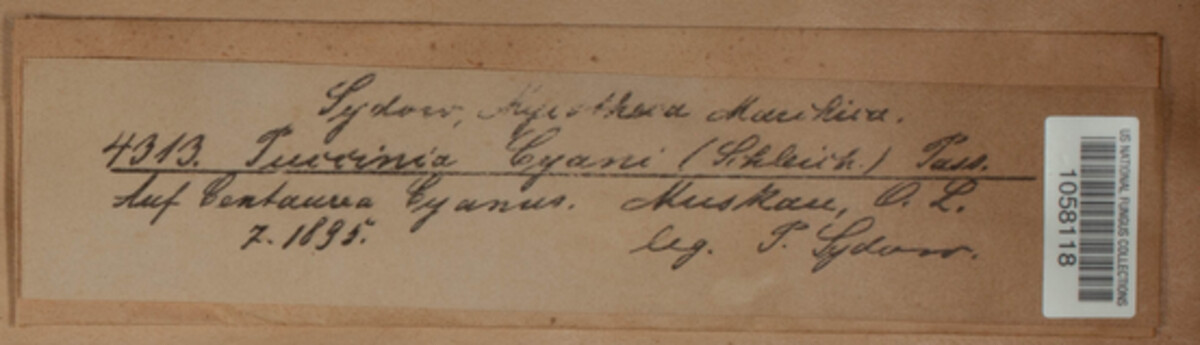 Sydow, Mycotheca Marchica.
4313. Puccinia Cyani (Schleich.) Pass.
Auf Centaurea Cyanus. Muskau, O. L.
7. 1895. leg. P. Sydow.
US NATIONAL FUNGUS COLLECTIONS
1058118